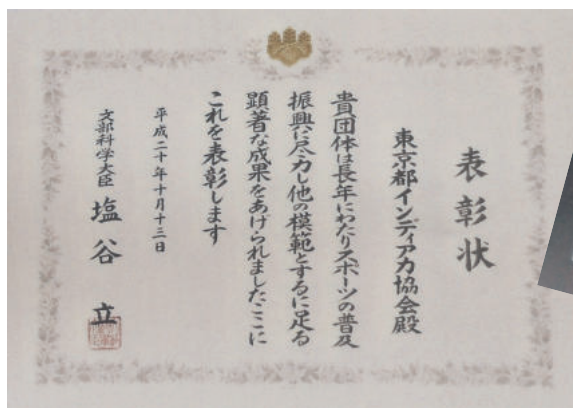 表彰状
東京都インディアカ協会殿
貴団体は長年にわたりスポーツの普及
振興に尽力し他の模範とするに足る
顕著な成果をあげられましたここに
これを表彰します
平成二十年十月十三日
文部科学大臣 塩谷 立